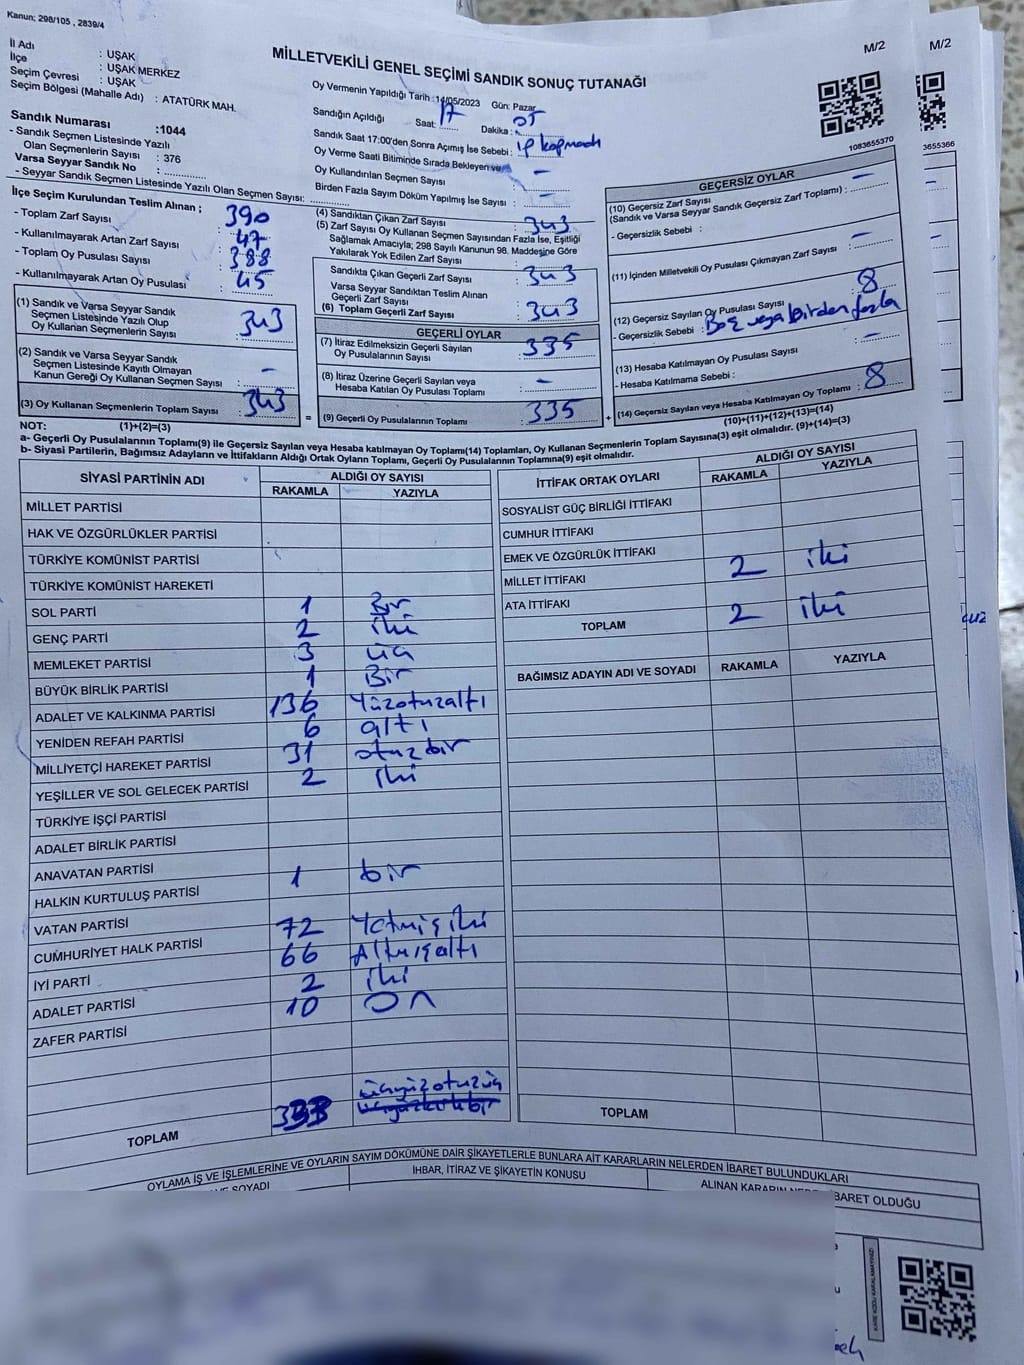 Kanun; 298/105 , 2839/4
M/2
M/2
MİLLETVEKİLİ GENEL SEÇİMİ SANDIK SONUÇ TUTANAĞI
İl Adı : UŞAK
İlçe : UŞAK MERKEZ
Seçim Çevresi : UŞAK
Seçim Bölgesi (Mahalle Adı) : ATATÜRK MAH.
Sandık Numarası :1044
- Sandık Seçmen Listesinde Yazılı
Olan Seçmenlerin Sayısı : 376
Varsa Seyyar Sandık No :
- Seyyar Sandık Seçmen Listesinde Yazılı Olan Seçmen Sayısı:
Oy Vermenin Yapıldığı Tarih :14/05/2023 Gün: Pazar
Sandığın Açıldığı Saat: 17 Dakika : 05
Sandık Saat 17:00'den Sonra Açımış İse Sebebi : ip kopmadı
Oy Verme Saati Bitiminde Sırada Bekleyen ve
Oy Kullandırılan Seçmen Sayısı : -
Birden Fazla Sayım Döküm Yapılmış İse Sayısı : -
1083655370
3655366
İlçe Seçim Kurulundan Teslim Alınan ;
- Toplam Zarf Sayısı : 390
- Kullanılmayarak Artan Zarf Sayısı : 47
- Toplam Oy Pusulası Sayısı : 388
- Kullanılmayarak Artan Oy Pusulası : 45
(1) Sandık ve Varsa Seyyar Sandık
Seçmen Listesinde Yazılı Olup
Oy Kullanan Seçmenlerin Sayısı : 343
(2) Sandık ve Varsa Seyyar Sandık
Seçmen Listesinde Kayıtlı Olmayan
Kanun Gereği Oy Kullanan Seçmen Sayısı : -
(3) Oy Kullanan Seçmenlerin Toplam Sayısı : 343
(4) Sandıktan Çıkan Zarf Sayısı : 343
(5) Zarf Sayısı Oy Kullanan Seçmen Sayısından Fazla İse, Eşitliği
Sağlamak Amacıyla; 298 Sayılı Kanunun 98. Maddesine Göre
Yakılarak Yok Edilen Zarf Sayısı :
Sandıkta Çıkan Geçerli Zarf Sayısı : 343
Varsa Seyyar Sandıktan Teslim Alınan
Geçerli Zarf Sayısı :
(6) Toplam Geçerli Zarf Sayısı : 343
GEÇERLİ OYLAR
(7) İtiraz Edilmeksizin Geçerli Sayılan
Oy Pusulalarının Sayısı : 335
(8) İtiraz Üzerine Geçerli Sayılan veya
Hesaba Katılan Oy Pusulası Toplamı : -
= (9) Geçerli Oy Pusulalarının Toplamı : 335 +
GEÇERSİZ OYLAR
(10) Geçersiz Zarf Sayısı
(Sandık ve Varsa Seyyar Sandık Geçersiz Zarf Toplamı) : -
- Geçersizlik Sebebi :
(11) İçinden Milletvekili Oy Pusulası Çıkmayan Zarf Sayısı : -
(12) Geçersiz Sayılan Oy Pusulası Sayısı : 8
- Geçersizlik Sebebi : Boş veya birden fazla
(13) Hesaba Katılmayan Oy Pusulası Sayısı : -
- Hesaba Katılmama Sebebi :
(14) Geçersiz Sayılan veya Hesaba Katılmayan Oy Toplamı : 8
(10)+(11)+(12)+(13)=(14)
NOT: (1)+(2)=(3)
a- Geçerli Oy Pusulalarının Toplamı(9) ile Geçersiz Sayılan veya Hesaba katılmayan Oy Toplamı(14) Toplamları, Oy Kullanan Seçmenlerin Toplam Sayısına(3) eşit olmalıdır. (9)+(14)=(3)
b- Siyasi Partilerin, Bağımsız Adayların ve İttifakların Aldığı Ortak Oyların Toplamı, Geçerli Oy Pusulalarının Toplamına(9) eşit olmalıdır.
SİYASİ PARTİNİN ADI ALDIĞI OY SAYISI
RAKAMLA YAZIYLA
MİLLET PARTİSİ
HAK VE ÖZGÜRLÜKLER PARTİSİ
TÜRKİYE KOMÜNİST PARTİSİ
TÜRKİYE KOMÜNİST HAREKETİ
SOL PARTİ 1 Bir
GENÇ PARTİ 2 iki
MEMLEKET PARTİSİ 3 üç
BÜYÜK BİRLİK PARTİSİ 1 Bir
ADALET VE KALKINMA PARTİSİ 136 Yüzotuzaltı
YENİDEN REFAH PARTİSİ 6 altı
MİLLİYETÇİ HAREKET PARTİSİ 31 otuzbir
YEŞİLLER VE SOL GELECEK PARTİSİ 2 iki
TÜRKİYE İŞÇİ PARTİSİ
ADALET BİRLİK PARTİSİ
ANAVATAN PARTİSİ
HALKIN KURTULUŞ PARTİSİ 1 bir
VATAN PARTİSİ
CUMHURİYET HALK PARTİSİ 72 Yetmişiki
İYİ PARTİ 66 Altmışaltı
ADALET PARTİSİ 2 iki
ZAFER PARTİSİ 10 On
TOPLAM 333 üçyüzotuzüç
İTTİFAK ORTAK OYLARI ALDIĞI OY SAYISI
RAKAMLA YAZIYLA
SOSYALİST GÜÇ BİRLİĞİ İTTİFAKI
CUMHUR İTTİFAKI
EMEK VE ÖZGÜRLÜK İTTİFAKI
MİLLET İTTİFAKI 2 iki
ATA İTTİFAKI
TOPLAM 2 iki
BAĞIMSIZ ADAYIN ADI VE SOYADI RAKAMLA YAZIYLA
TOPLAM
OYLAMA İŞ VE İŞLEMLERİNE VE OYLARIN SAYIM DÖKÜMÜNE DAİR ŞİKAYETLERLE BUNLARA AİT KARARLARIN NELERDEN İBARET BULUNDUKLARI
SOYADI İHBAR, İTİRAZ VE ŞİKAYETİN KONUSU ALINAN KARARIN NEDEN İBARET OLDUĞU